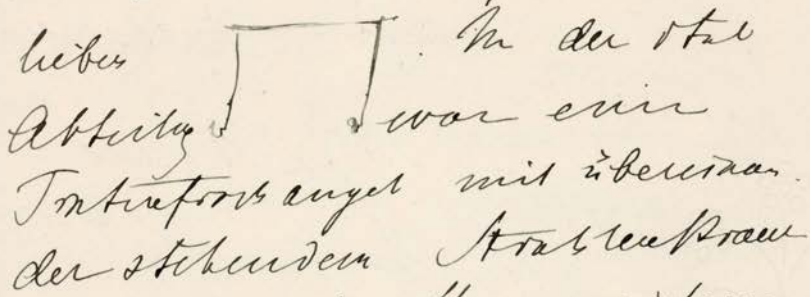 lieber
In der ital
Abteilung war ein
Tintenfischangel mit übereinan-
der stehendem Strahlenkranz